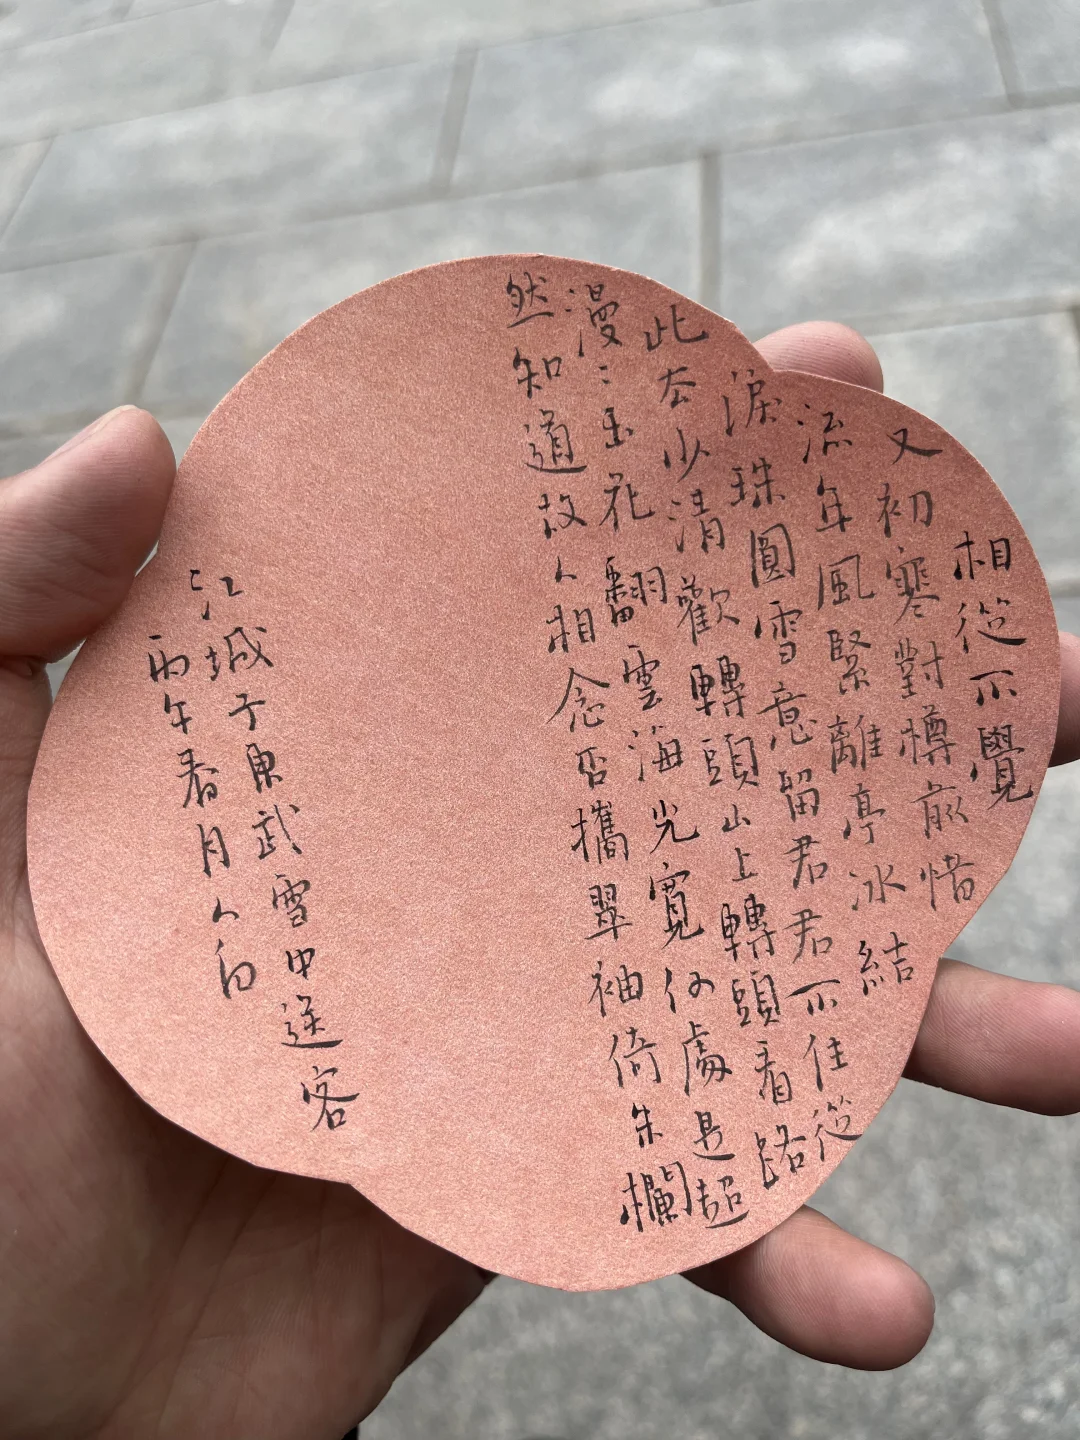 相從不覺
又初寒對樽前惜
流年風緊離亭冰結
淚珠圓雪意留君君不住從
此去少清歡轉頭山上轉頭看路
漫〻玉花翻雲海光寬何處是超
然知道故人相念否攜翠袖倚朱欄
江城子東武雪中送客
丙午春月人